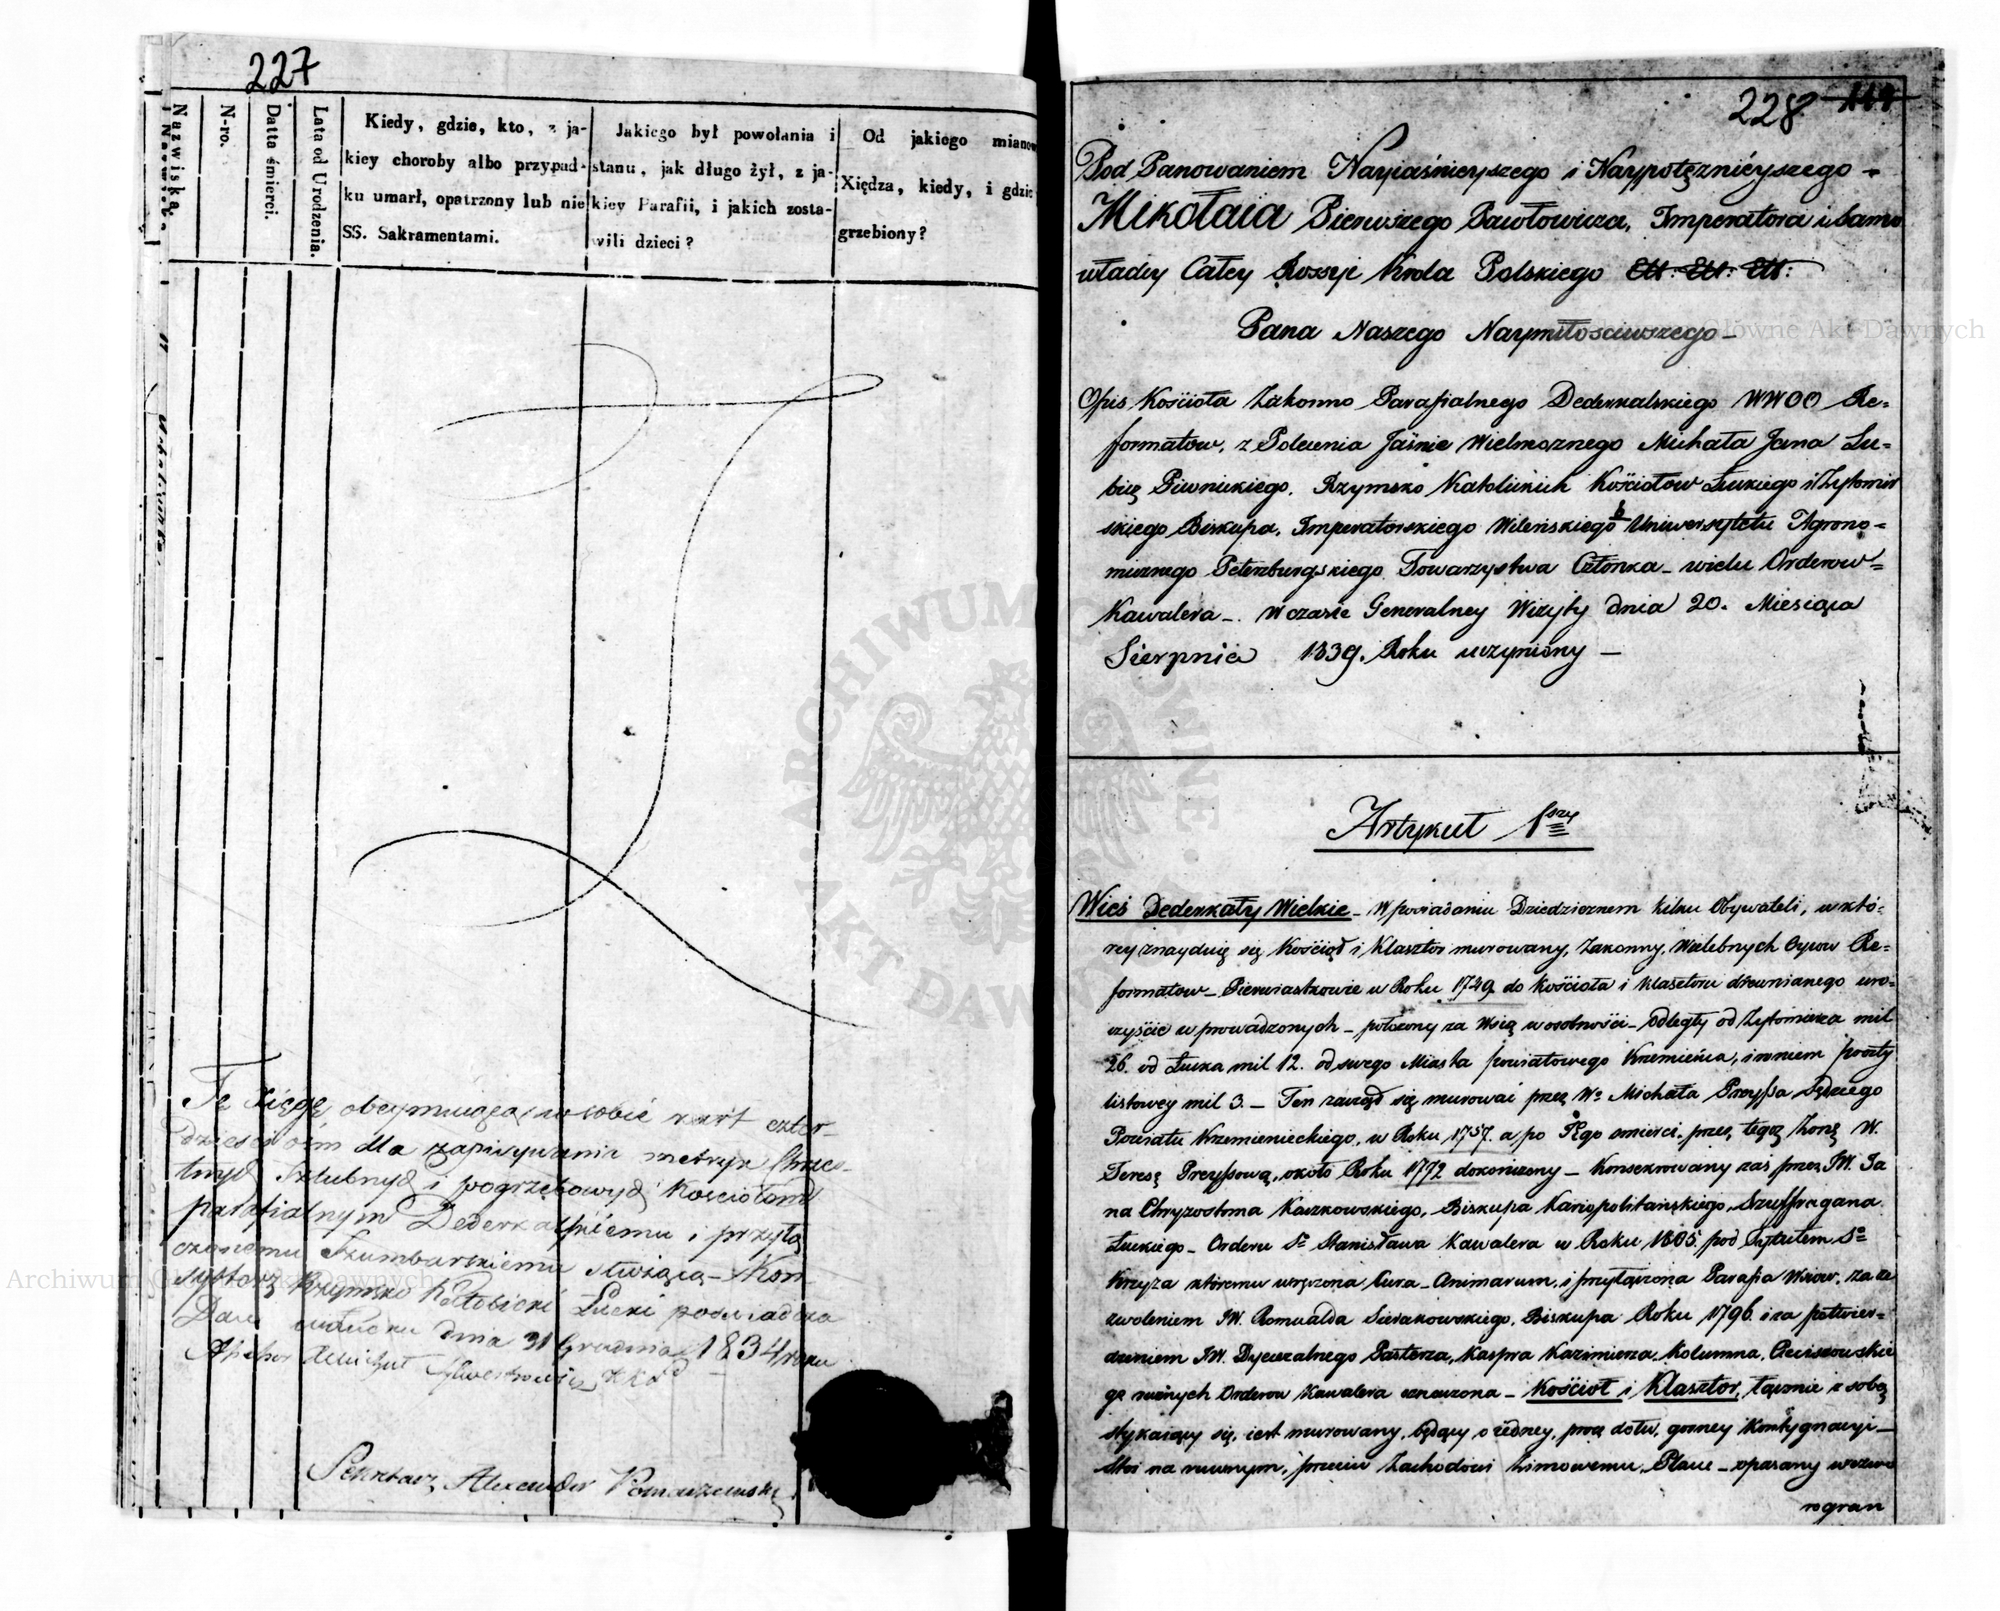 227
Nazwiska i Imiona
N-ro.
Datta śmierci.
Lata od Urodzenia.
Kiedy, gdzie, kto, z ja-
kiey choroby albo przypad-
ku umarł, opatrzony lub nie
SS. Sakramentami.
Jakiego był powołania i
stanu, jak długo żył, z ja-
kiey Parafii, i jakich zosta-
wili dzieci?
Od jakiego mianow
Xiędza, kiedy, i gdzie
grzebiony?
Tę Xięgę obeymuiącą w sobie kart czter-
dzieści ośm dla zapisywania metryk Chrzes-
tnych Szlubnych i pogrzebowych Kościołowi
parafialnym Dederkalskiemu i przyłą
czonemu Szumbarskiemu służącą – Kon
systorz Rzymsko Katolicki Łucki poświadcza
Dan dnia 31 Grudnia 1834 roku
Michał
Sekretarz Alexander
228.
Pod Panowaniem Nayiaśnieyszego i Naypotężnieyszego –
Mikołaia Pierwszego Pawłowicza, Imperatora i Samo
władcy Całey Rossyi Krola Polskiego Ett. Ett. Ett.
Pana Naszego Naymiłościwszego –
Opis Kościoła Zakonno Parafialnego Dederkalskiego WWOO Re=
formatow, z Polecenia Jaśnie Wielmożnego Michała Jana Lu=
bicz Piwnickiego, Rzymsko Katolickich Kościołow Łuckiego i Żytomir
skiego Biskupa, Imperatorskiego Wileńskiego b Uniwersytetu Agrono=
micznego Petersburgskiego Towarzystwa Członka – wielu Orderow=
Kawalera –. W czasie Generalney Wizyty dnia 20. Miesiąca
Sierpnia 1839. Roku uczyniony –
Artykuł 1szy
Wieś Dederkały Wielkie – W posiadaniu Dziedzicznem kilku Obywateli, w któ=
rey znayduię się Kościół i Klasztor murowany, Zakonny, Wielebnych Oycow Re=
formatow – Pierwiastkowie w Roku 1749. do kościoła i klasztoru drewnianego uro=
czyście wprowadzonych – położony za Wsią w osobności – Odległy od Żytomierza mil
26. od Łucka mil 12. od swego Miasta powiatowego Krzemieńca, i w niem poczty
listowey mil 3. – Ten zaczął się murować przez Wo Michała Preyssa Sędziego
Powiatu Krzemienieckiego, w Roku 1757. a po Jego smierci, przez tegoż żonę W.
Teresę Preyssową, około Roku 1772 dokończony – Konsekrowany zaś przez JW. Ja
na Chryzostoma Kaczkowskiego, Biskupa Kariopolitańskiego, Szuffragana
Łuckiego – Orderu So Stanisława Kawalera w Roku 1805. pod Tytułem So
Krzyża któremu wręczona Cura – Animarum, i przyłączona Parafia Wsiow, za ze
zwoleniem JW. Romualda Sierakowskiego, Biskupa Roku 1796. i za potwier=
dzeniem JW. Dyecezalnego Pasterza, Kaspra Kazimierza Kolumna, Cieciszowskie
go rożnych Orderow Kawalera oznaczona – Kościoł i Klasztor, łącznie z sobą
stykaiący się, iest murowany, będący o iedney, procz dołu, gorney Kontygnacyi –
Stoi na rownym, przeciw Zachodowi Zimowemu, Placu – opasany wczwo
rogran
Archiwum Główne Akt Dawnych
ARCHIWUM GŁÓWNE AKT DAWNYCH